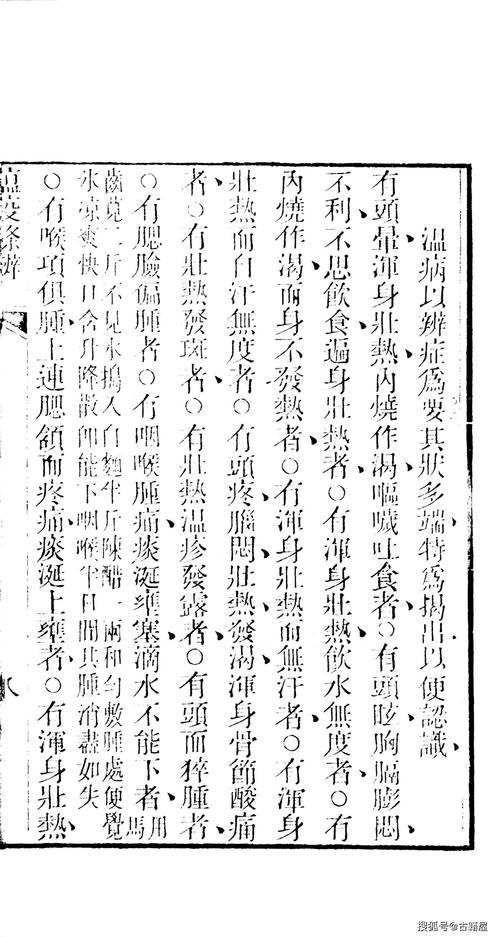 溫病以辨症爲要其狀多端特爲揭出以便認識
有頭暈渾身壯熱內燒作渴嘔噦吐食者○有頭眩胸膈膨悶
不利不思飲食遍身壯熱者○有渾身壯熱飲水無度者○有
內燒作渴而身不發熱者○有渾身壯熱而無汗者○有渾身
壯熱而自汗無度者○有頭疼腦悶壯熱發渴渾身骨節酸痛
者○有壯熱發斑者○有壯熱溫疹發露者○有頭面猝腫者
○有腮臉偏腫者○有咽喉腫痛痰涎壅塞滴水不能下者用馬
齒莧二斤不見水搗入白麵半斤陳醋一兩和勻敷腫處便覺
氷凉爽快且含升降散卽能下咽喉半日間其腫消盡如失
○有喉項俱腫上連腮頷而疼痛痰涎上壅者○有渾身壯熱
疫條辨
八
搜狐号@古籍屋